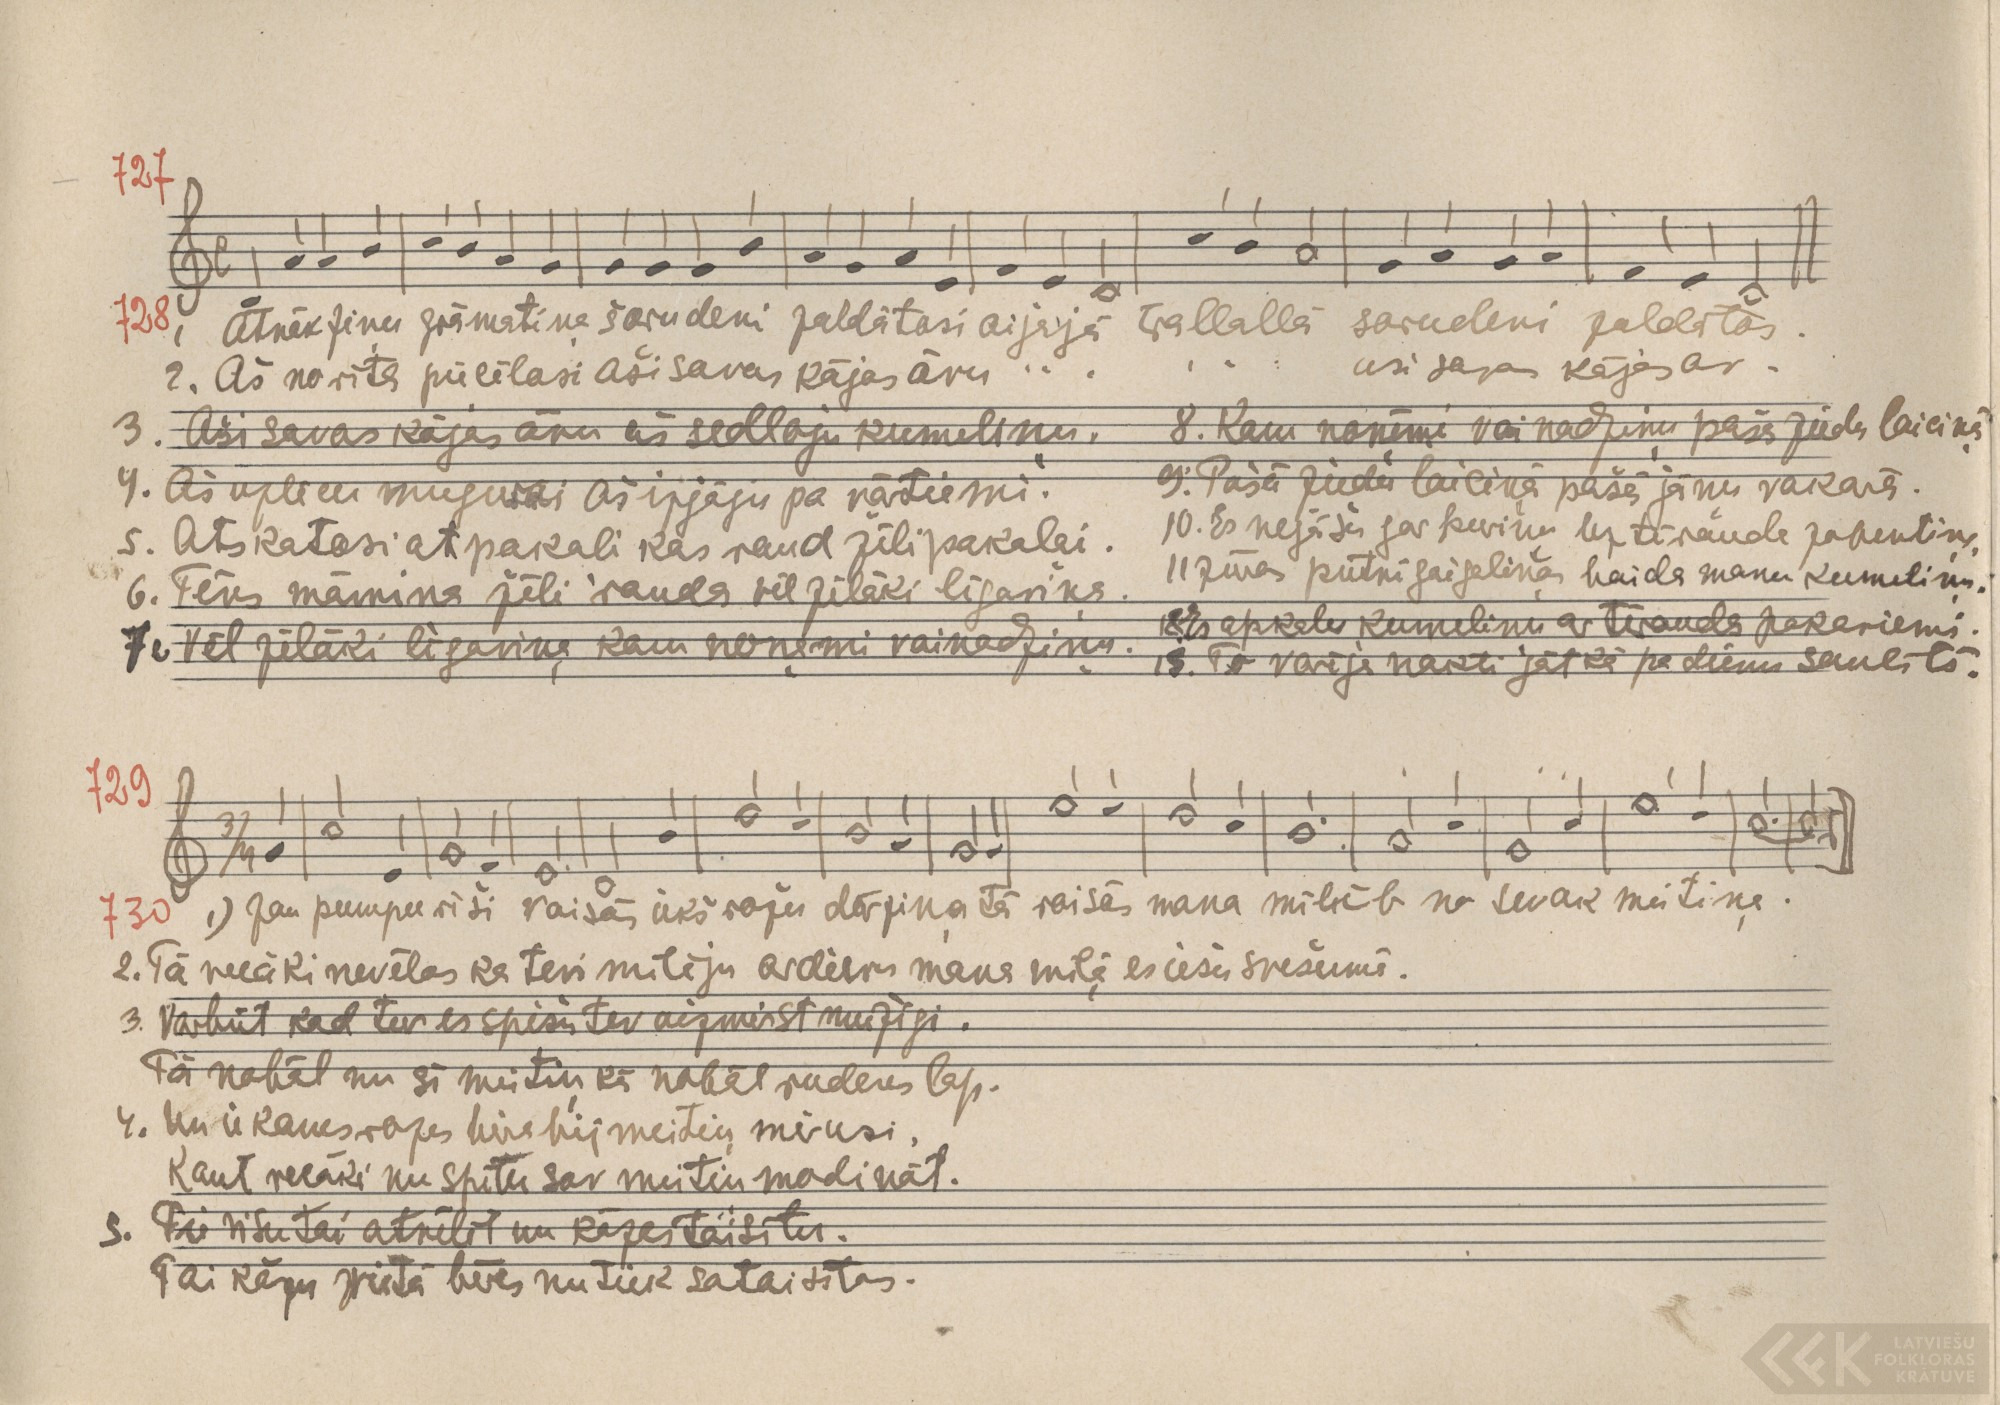 727
728
1, Atnāk ziņu grāmatiņa šorudeni zaldātosi aijajā trallallā sorudeni zaldātōs.
2. Aš no rīta pūcēlasi aši savas kājas āvu " " . ' " " usi savas kājas av.
3. Aši savas kājas āvu aš sedloju kumeliņu.
4. Aš uzlicu mugurai aš izjāju pa vārtiemi.
5. Atskatosi atpakali kas raud žēli pakalai.
6. Tēvs māmiņa žēli rauda vēl žēlāki līgaviņa.
7. Vēl žēlāki līgaviņa kam noņemi vainadziņu.
8. Kam noņēmi vainadziņu pašā ziedu laiciņā
9. Pašā ziedu laiciņā pašā jāņu vakarā.
10. Es nejāšu gar
11 zutni gaigaliņas baida manu kumeliņu.
12 Es apkalu kumeliņu ar tērauda pakaviemi.
13. To varēja nakti jāt kā pa dienu saulītē.
729
3/4
730 1,) zau pumpuriši raisās ikš rožu dārziņa tā raisās mana milestib no sevak meitiņa.
2. Tā vecāki nevēlas ka tevi mīlēju ardievu mana mīļā es iešu svešumā.
3. Varbūt kad tur es spēšu tev aizmirst mūžigi.
Tā nobāl nu šī meitiņ kā nobāl rudens lap.
4. Nu rozes bira bij meitiņ mirusi,
Kaut vecāki nu spētu sav meitiņ modināt.
5. Tie visu tai atvēlēt nu kāzas taisītu.
Tai kāzu vietā bēres nu tiek sataisītas.
LATVIEŠU
FOLKLORAS
KRATUVE